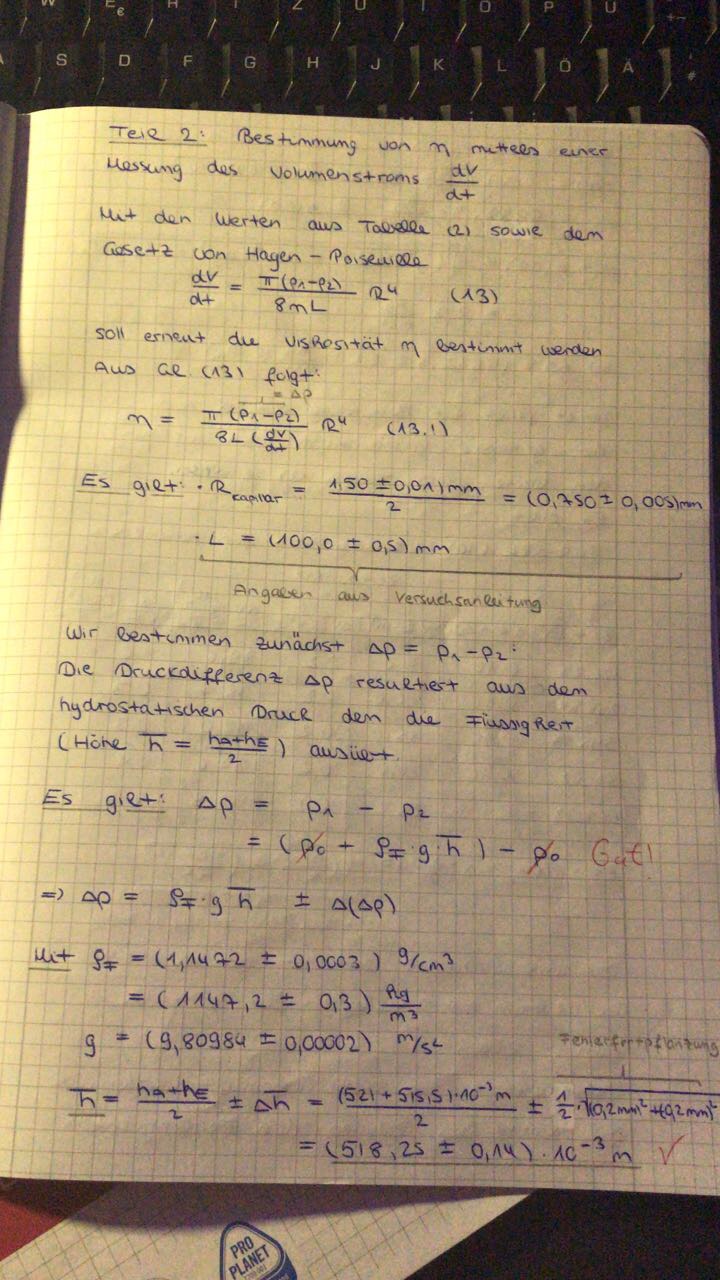 W E € R T Z U I O P Ü
A S D F G H J K L Ö Ä #
Teil 2: Bestimmung von η mittels einer
Messung des Volumenstroms dV/dt
Mit den Werten aus Tabelle (2) sowie dem
Gesetz von Hagen-Poiseuille
dV/dt = π(p₁-p₂)/8ηL R⁴ (13)
soll erneut die Viskosität η bestimmt werden
Aus Gl. (13) folgt:
= Δp
η = π(p₁-p₂)/8L(dV/dt) R⁴ (13.1)
Es gilt: · R_Kapillar = 1,50 ± 0,01)mm/2 = (0,750 ± 0,005)mm
· L = (100,0 ± 0,5) mm
Angaben aus Versuchsanleitung
Wir bestimmen zunächst Δp = p₁-p₂:
Die Druckdifferenz Δp resultiert aus dem
hydrostatischen Druck den die Flüssigkeit
(Höhe h̅ = hA+hE/2) ausübt.
Es gilt: Δp = p₁ - p₂
= (p₀ + ρF·g·h̅) - p₀ Gut!
=> Δp = ρF·g h̅ ± Δ(Δp)
Mit ρF = (1,1472 ± 0,0003) g/cm³
= (1147,2 ± 0,3) kg/m³
g = (9,80984 ± 0,00002) m/s²
Fehlerfortpflanzung
h̅ = hA+hE/2 ± Δh̅ = (521 + 515,5)·10⁻³m/2 ± 1/2·√(0,2mm)²+(0,2mm)²
= (518,25 ± 0,14)·10⁻³ m ✓
PRO
PLANET